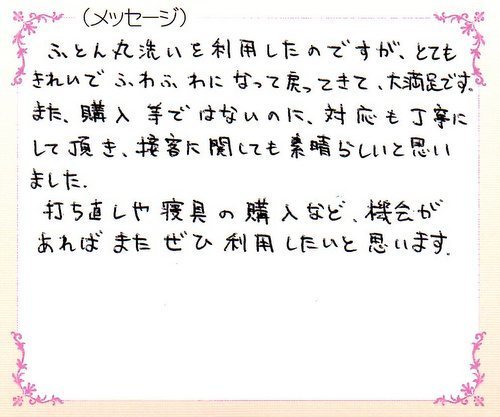 (メッセージ)
ふとん丸洗いを利用したのですが、とても
きれいでふわふわになって戻ってきて、大満足です。
また、購入等ではないのに、対応も丁寧に
して頂き、接客に関しても素晴らしいと思い
ました.
打ち直しや寝具の購入など、機会が
あればまたぜひ利用したいと思います。